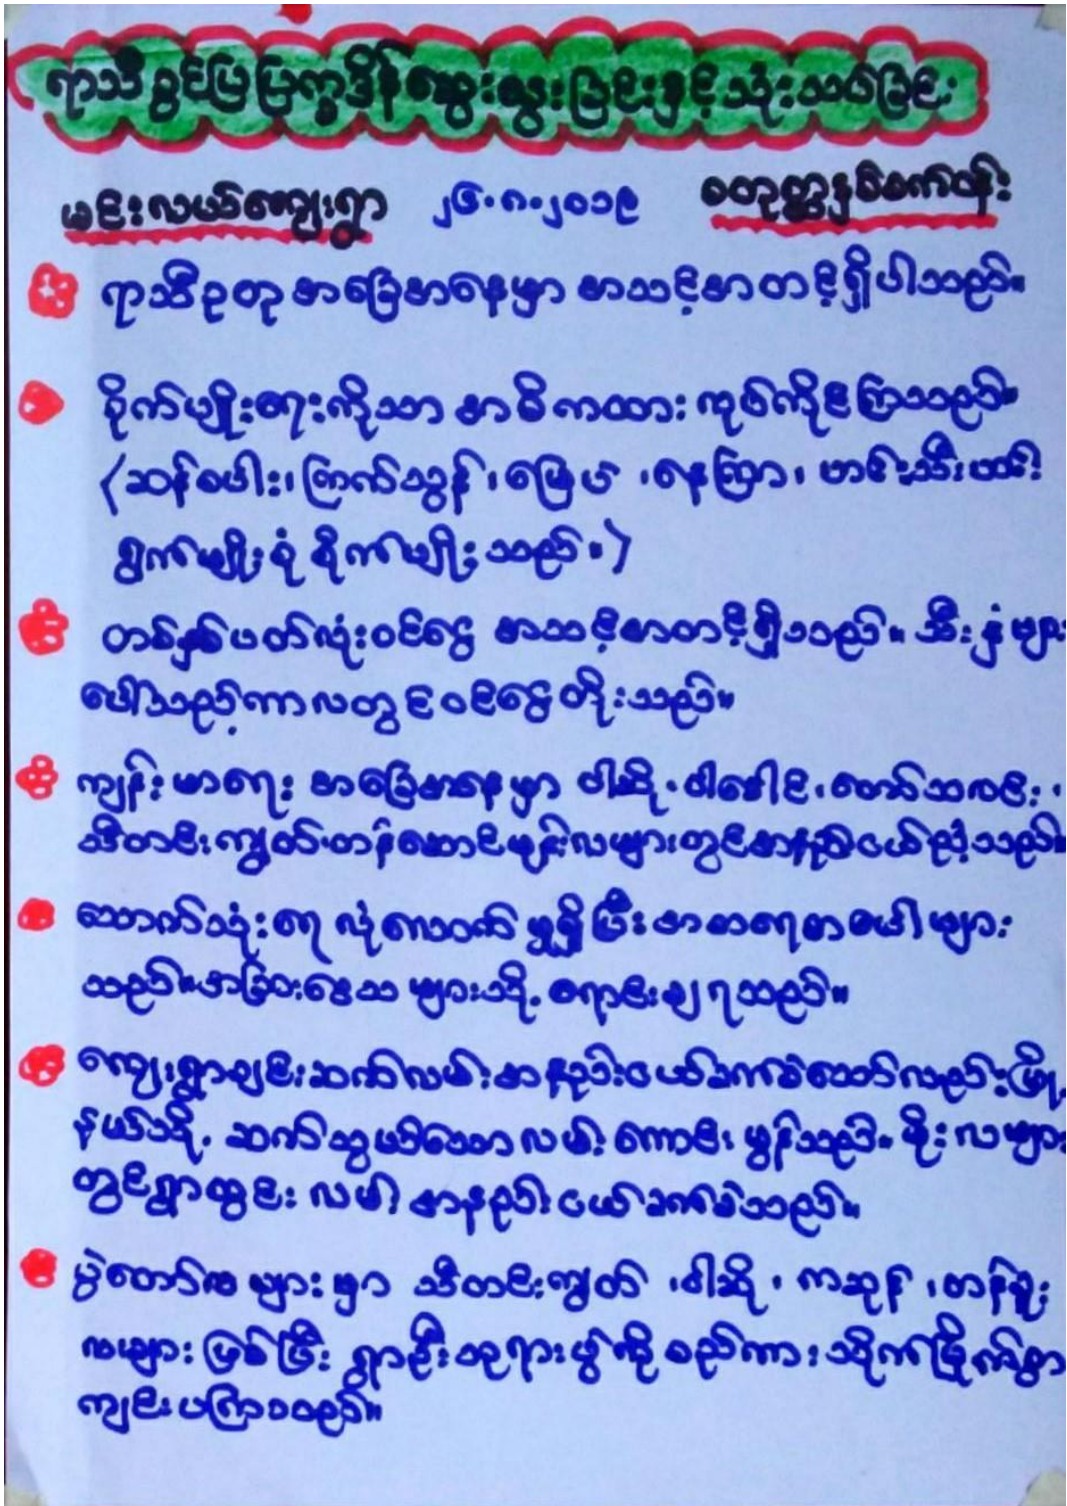 ရာသီခွင်ပြပြက္ခဒိန်ဆွေးနွေးခြင်းနှင့်သုံးသပ်ခြင်း
မင်းလယ်ကျေးရွာ ၂၆.၈.၂၀၁၉ စတုတ္ထနှစ်စက်ဝန်း
ရာသီဥတုအခြေအနေမှာ အသင့်အတင့်ရှိပါသည်။
စိုက်ပျိုးရေးကိုသာ အဓိကထား လုပ်ကိုင်ကြသည်။
(ဆန်စပါး၊ ကြက်သွန်၊ မြေပဲ ၊နေကြာ၊ ဟင်းသီးဟင်း
ရွက်မျိုးစုံ စိုက်ပျိုးသည်။)
တစ်နှစ်ပတ်လုံးဝင်ငွေ အသင့်အတင့်ရှိသည်။ သီးနှံများ
ပေါ်သည့်ကာလတွင်ဝင်ငွေတိုးသည်။
ကျန်းမာရေး အခြေအနေမှာ ဝါဆို၊ ဝါခေါင်၊တော်သလင်း၊
သီတင်းကျွတ်၊တန်ဆောင်မုန်းလများတွင်အနည်းငယ်ညံ့သည်။
သောက်သုံးရေ လုံလောက်မှုရှိပြီး အစာရေစာပေါများ
သည်။အခြားဒေသများသို့ ရောင်းချရသည်။
ကျေးရွာချင်းဆက်လမ်းအနည်းငယ်ခက်ခဲသော်လည်းမြို့
နယ်သို့ ဆက်သွယ်သောလမ်း ကောင်းမွန်သည်။ မိုးလများ
တွင်ရွာတွင်းလမ်း အနည်းငယ်ခက်ခဲသည်။
ပွဲတော်လများမှာ သီတင်းကျွတ် ၊ဝါဆို၊ ကဆုန် ၊တန်ခူး
လများဖြစ်ပြီး ရွာဦးဘုရားပွဲကို စည်ကားသိုက်မြိုက်စွာ
ကျင်းပကြသည်။